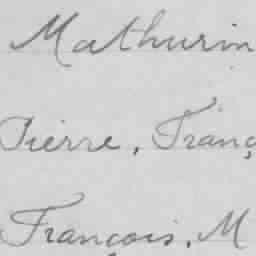 Mathurin
Pierre, Franç
François, M